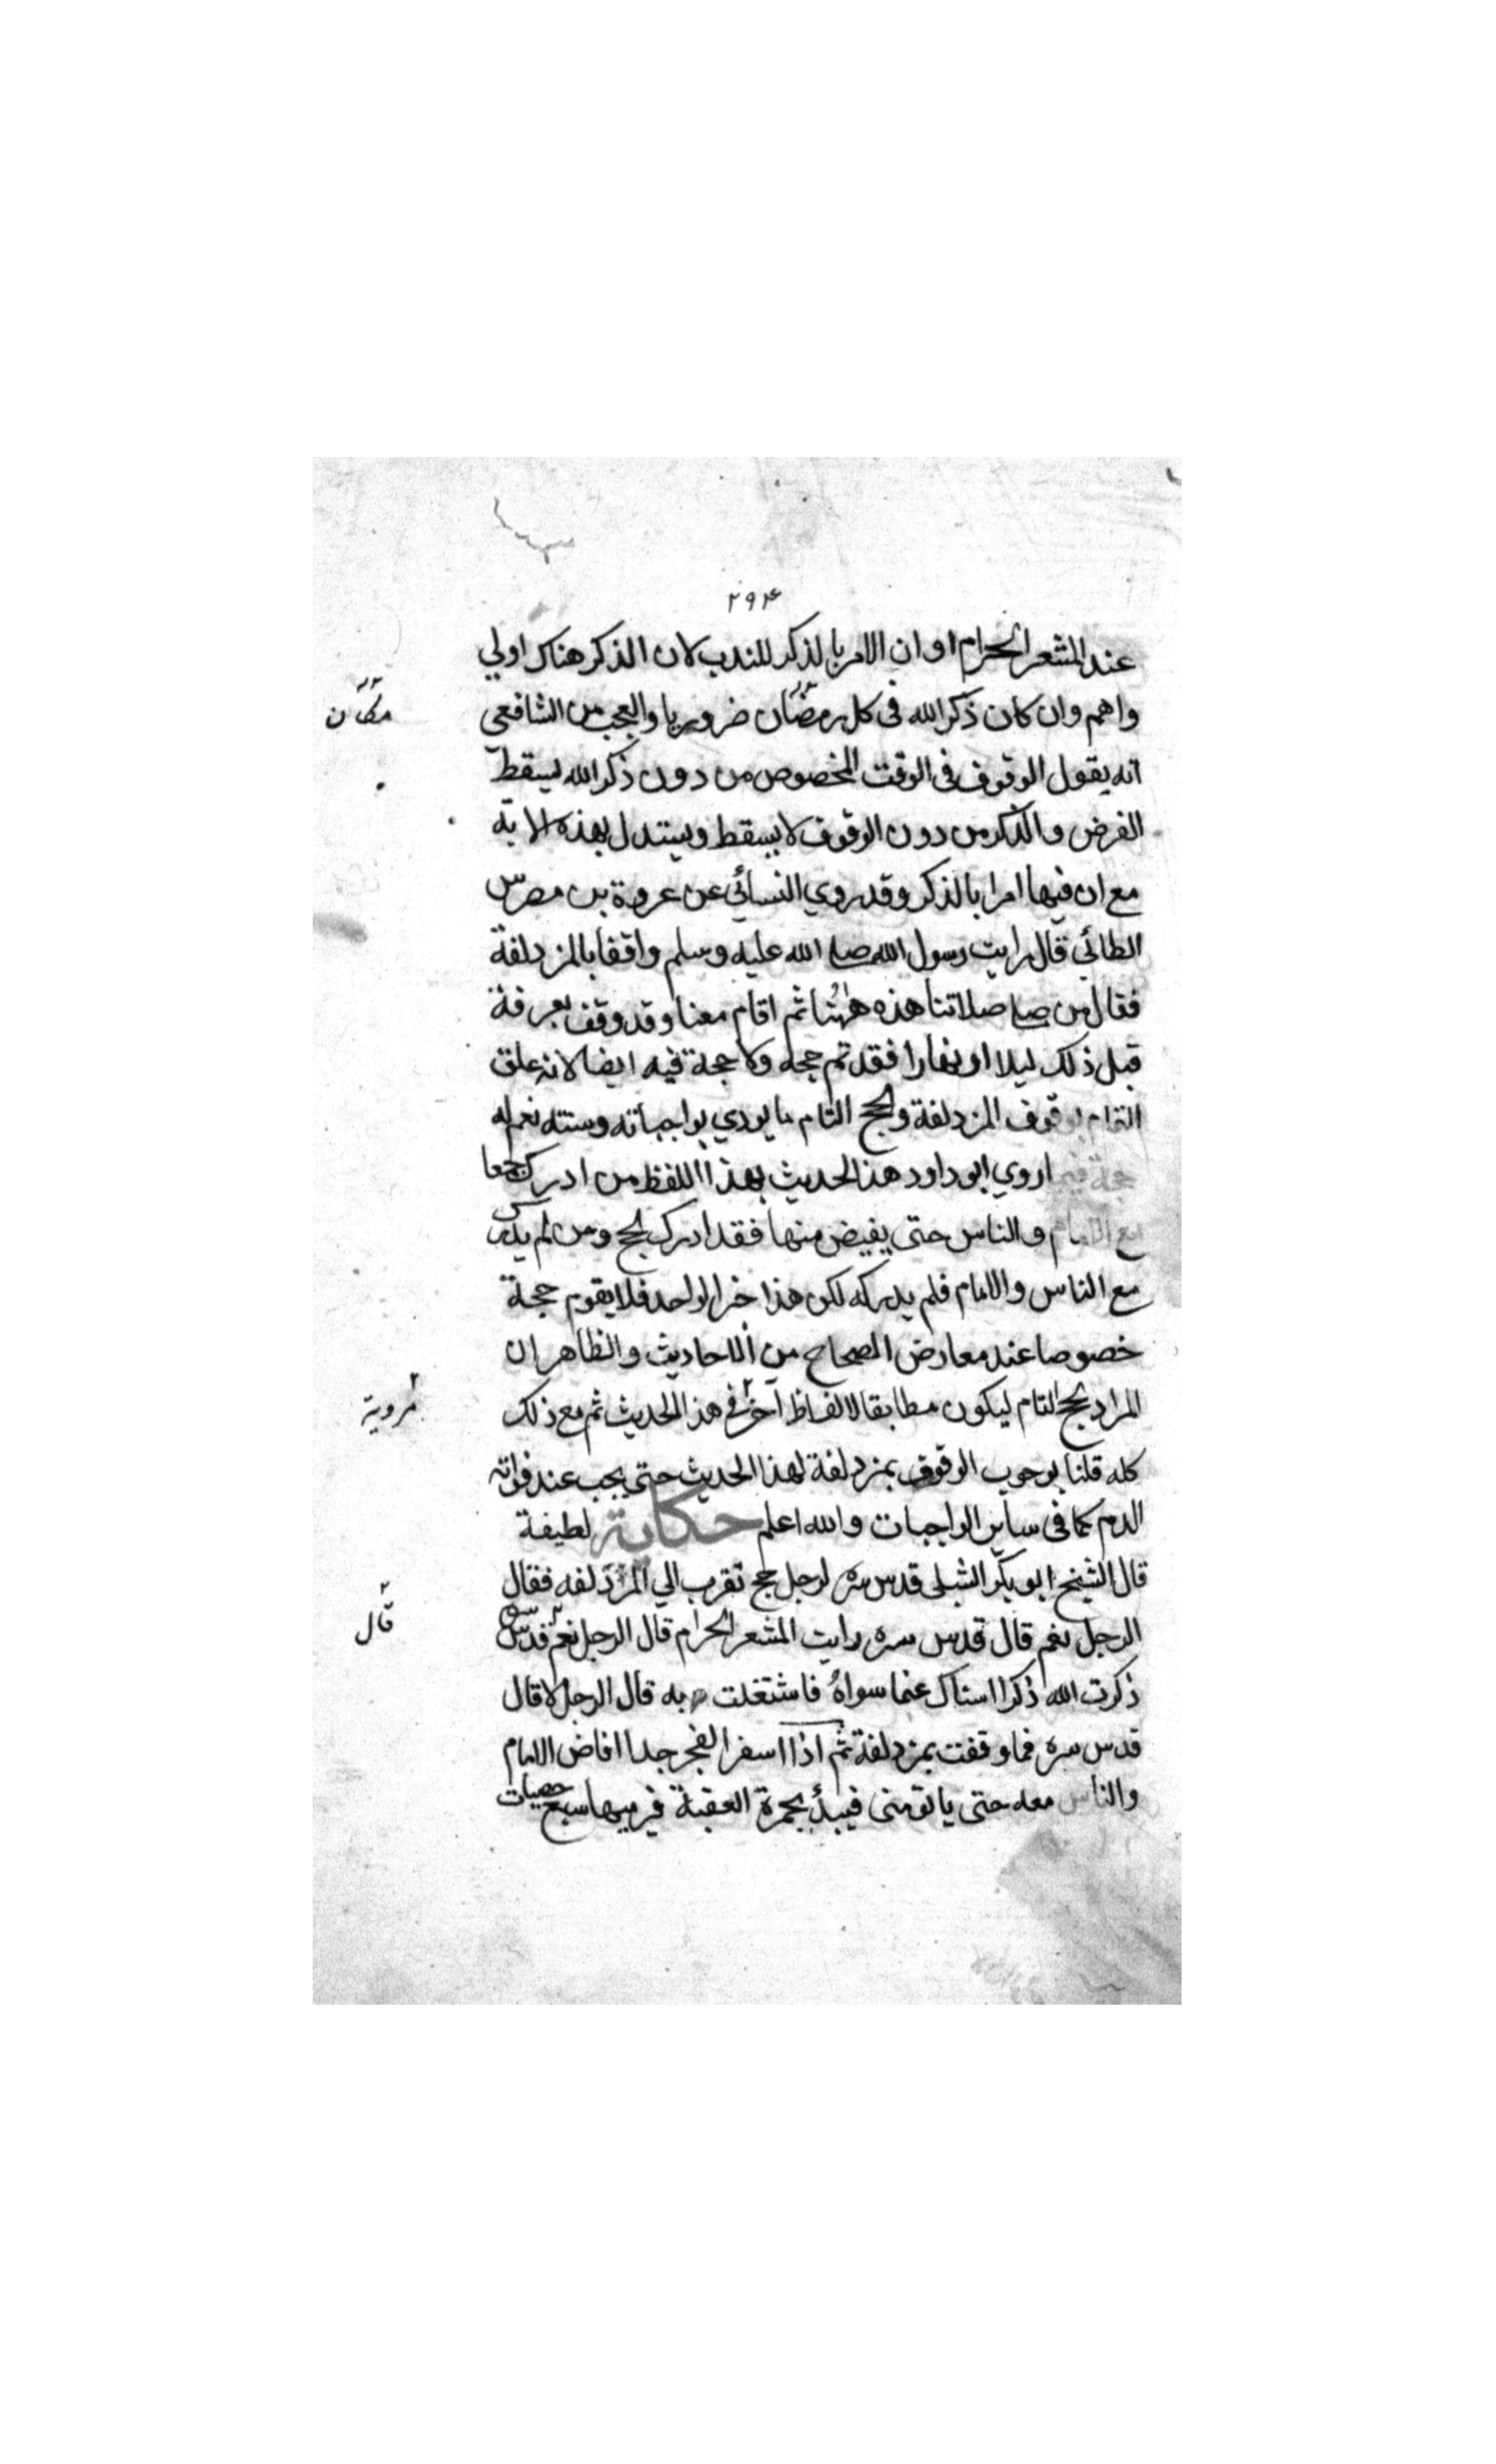 ۲۹۴
عند المشعر الحرام او ان الامر بالذكر للندب لان الذكر هناك اولي
واهم وان كان ذكر الله فى كل رمضان ضروريا والعجب من الشافعي
مكان
انه يقول الوقوف فى الوقت المخصوص من دون ذكر الله ليسقط
الفرض والذكر من دون الوقوف لا يسقط ويستدل بهذه الاية
مع ان فيها امرا بالذكر وقد روي النسائي عن عروة بن مضرس
الطائي قال رايت رسول الله صلى الله عليه وسلم واقفا بالمزدلفة
فقال من صلى صلاتنا هذه ههنا ثم اقام معنا وقد وقف بعرفة
قبل ذلك ليلا او نهارا فقد تم حجه ولا حجة فيه ايضا لانه علق
التمام بوقوف المزدلفة والحج التام ما يودي بواجباته وسننه نعم له
حجة فيما روي ابو داود هذا الحديث بهذا اللفظ من ادرك جمعا
مع الامام والناس حتى يفيض منها فقد ادرك الحج ومن لم يدرك
مع الناس والامام فلم يدركه لكن هذا خبر الواحد فلا يقوم حجة
خصوصا عند معارض الصحاح من الاحاديث والظاهر ان
المراد بحج التام ليكون مطابقا لالفاظ آخر فى هذا الحديث ثم مع ذلك
مروية
كله قلنا بوجوب الوقوف بمزدلفة لهذا الحديث حتى يجب عند فواته
الدم كما فى ساير الواجبات والله اعلم حكاية لطيفة
قال الشيخ ابو بكر الشبلى قدس سره لرجل حج تقرب الي المزدلفه فقال
الرجل نعم قال قدس سره رايت المشعر الحرام قال الرجل نعم قدس سره
قال
ذكرت الله ذكرا انساك عما سواه فاشتغلت به قال الرجل لا قال
قدس سره فما وقفت بمزدلفة ثم اذا اسفر الفجر جدا افاض الامام
والناس معه حتى ياتو منى فيبدأ بجمرة العقبة فيرميها سبع حصيات